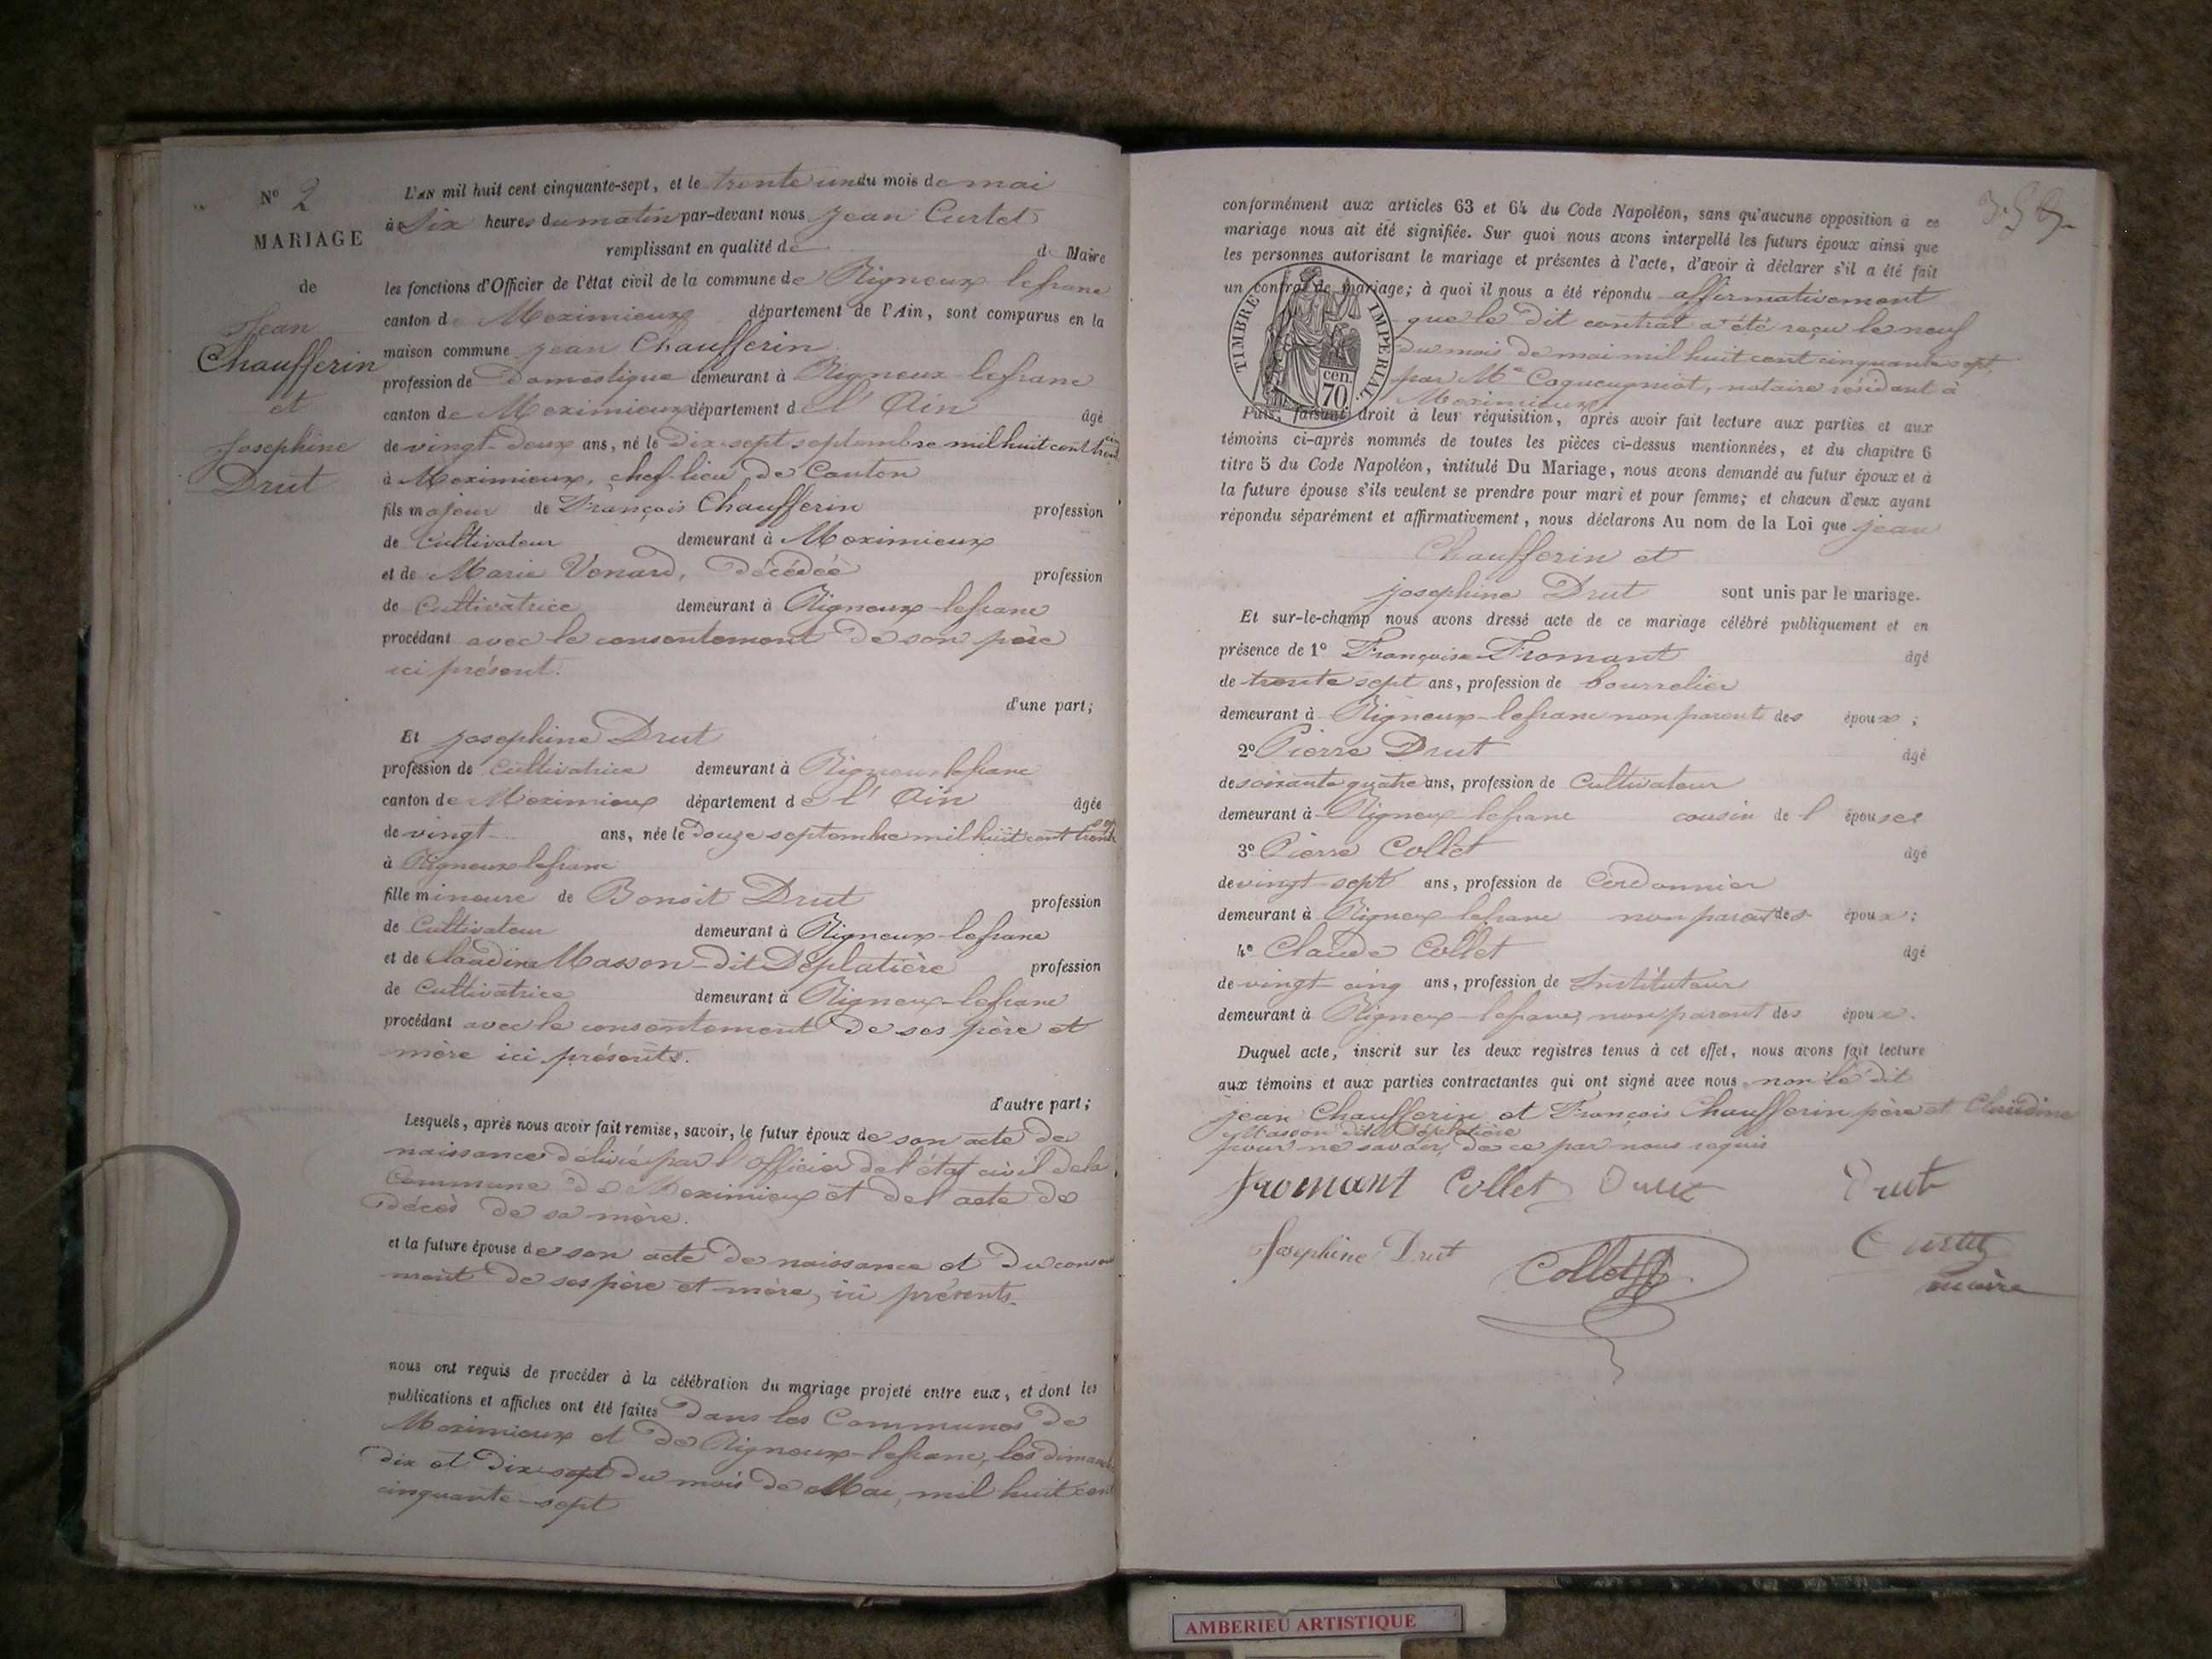 N° 2
MARIAGE
de
Jean
Chaufferin
et
Josephine
Drut
L'AN mil huit cent cinquante-sept, et le trente un du mois de mai
à Six heures du matin par-devant nous Jean Curtet
remplissant en qualité de de Maire
les fonctions d'Officier de l'état civil de la commune de Rigneux lefranc
canton de Meximieux département de l'Ain, sont comparus en la
maison commune Jean Chaufferin
profession de Domestique demeurant à Rigneux lefranc
canton de Meximieux département de l'Ain âgé
de vingt-deux ans, né le Dix sept septembre mil huit cent trente
à Meximieux, chef-lieu de Canton
fils majeur de François Chaufferin profession
de Cultivateur demeurant à Meximieux
et de Marie Venard, Décédée profession
de Cultivatrice demeurant à Rigneux-lefranc
procédant avec le consentement de son père
ici présent.
d'une part;
Et josephine Drut
profession de Cultivatrice demeurant à Rigneux lefranc
canton de Meximieux département de l'Ain âgée
de vingt ans, née le Douze septembre mil huit cent trente
à Rigneux lefranc
fille mineure de Benoit Drut profession
de Cultivateur demeurant à Rigneux-lefranc
et de Claudine Masson-dit Déplatière profession
de Cultivatrice demeurant à Rigneux-lefranc
procédant avec le consentement de ses père et
mère ici présents.
d'autre part;
Lesquels, après nous avoir fait remise, savoir, le futur époux de son acte de
naissance délivré par l'officier de l'état civil de la
Commune de Meximieux et de l'acte de
Décès de sa mère.
et la future épouse de son acte de naissance et du consente
ment de ses père et mère, ici présents.
nous ont requis de procéder à la célébration du mariage projeté entre eux, et dont les
publications et affiches ont été faites Dans les Communes de
Meximieux et de Rigneux-lefranc, les dimanches
dix et dix sept du mois de Mai, mil huit cent
cinquante-sept
conformément aux articles 63 et 64 du Code Napoléon, sans qu'aucune opposition à ce
mariage nous ait été signifiée. Sur quoi nous avons interpellé les futurs époux ainsi que
les personnes autorisant le mariage et présentes à l'acte, d'avoir à déclarer s'il a été fait
un contrat de mariage; à quoi il nous a été répondu affirmativement
que le dit contrat a été reçu le neuf
du mois de mai mil huit cent cinquante sept,
par Me Coqueugniot, notaire résidant à
Meximieux
TIMBRE IMPERIAL
cen.
70.
Puis, faisant droit à leur réquisition, après avoir fait lecture aux parties et aux
témoins ci-après nommés de toutes les pièces ci-dessus mentionnées, et du chapitre 6
titre 5 du Code Napoléon, intitulé Du Mariage, nous avons demandé au futur époux et à
la future épouse s'ils veulent se prendre pour mari et pour femme; et chacun d'eux ayant
répondu séparément et affirmativement, nous déclarons Au nom de la Loi que jean
Chaufferin et
josephine Drut sont unis par le mariage.
Et sur-le-champ nous avons dressé acte de ce mariage célébré publiquement et en
présence de 1° François Fromant âgé
de trente sept ans, profession de bourrelier
demeurant à Rigneux-lefranc non parent des époux;
2° Pierre Drut âgé
de soixante quatre ans, profession de Cultivateur
demeurant à Rigneux lefranc cousin de l'épouse
3° Pierre Collet âgé
de vingt-sept ans, profession de Cordonnier
demeurant à Rigneux lefranc non parent des époux;
4° Claude Collet âgé
de vingt-cinq ans, profession de Instituteur
demeurant à Rigneux-lefranc, non parent des époux.
Duquel acte, inscrit sur les deux registres tenus à cet effet, nous avons fait lecture
aux témoins et aux parties contractantes qui ont signé avec nous non le dit
jean Chaufferin et François Chaufferin père et Claudine
Masson dit Déplatière
pour ne savoir, de ce par nous requis
Fromant Collet Drut Drut
Josephine Drut Collet Curtet
maire
AMBERIEU ARTISTIQUE